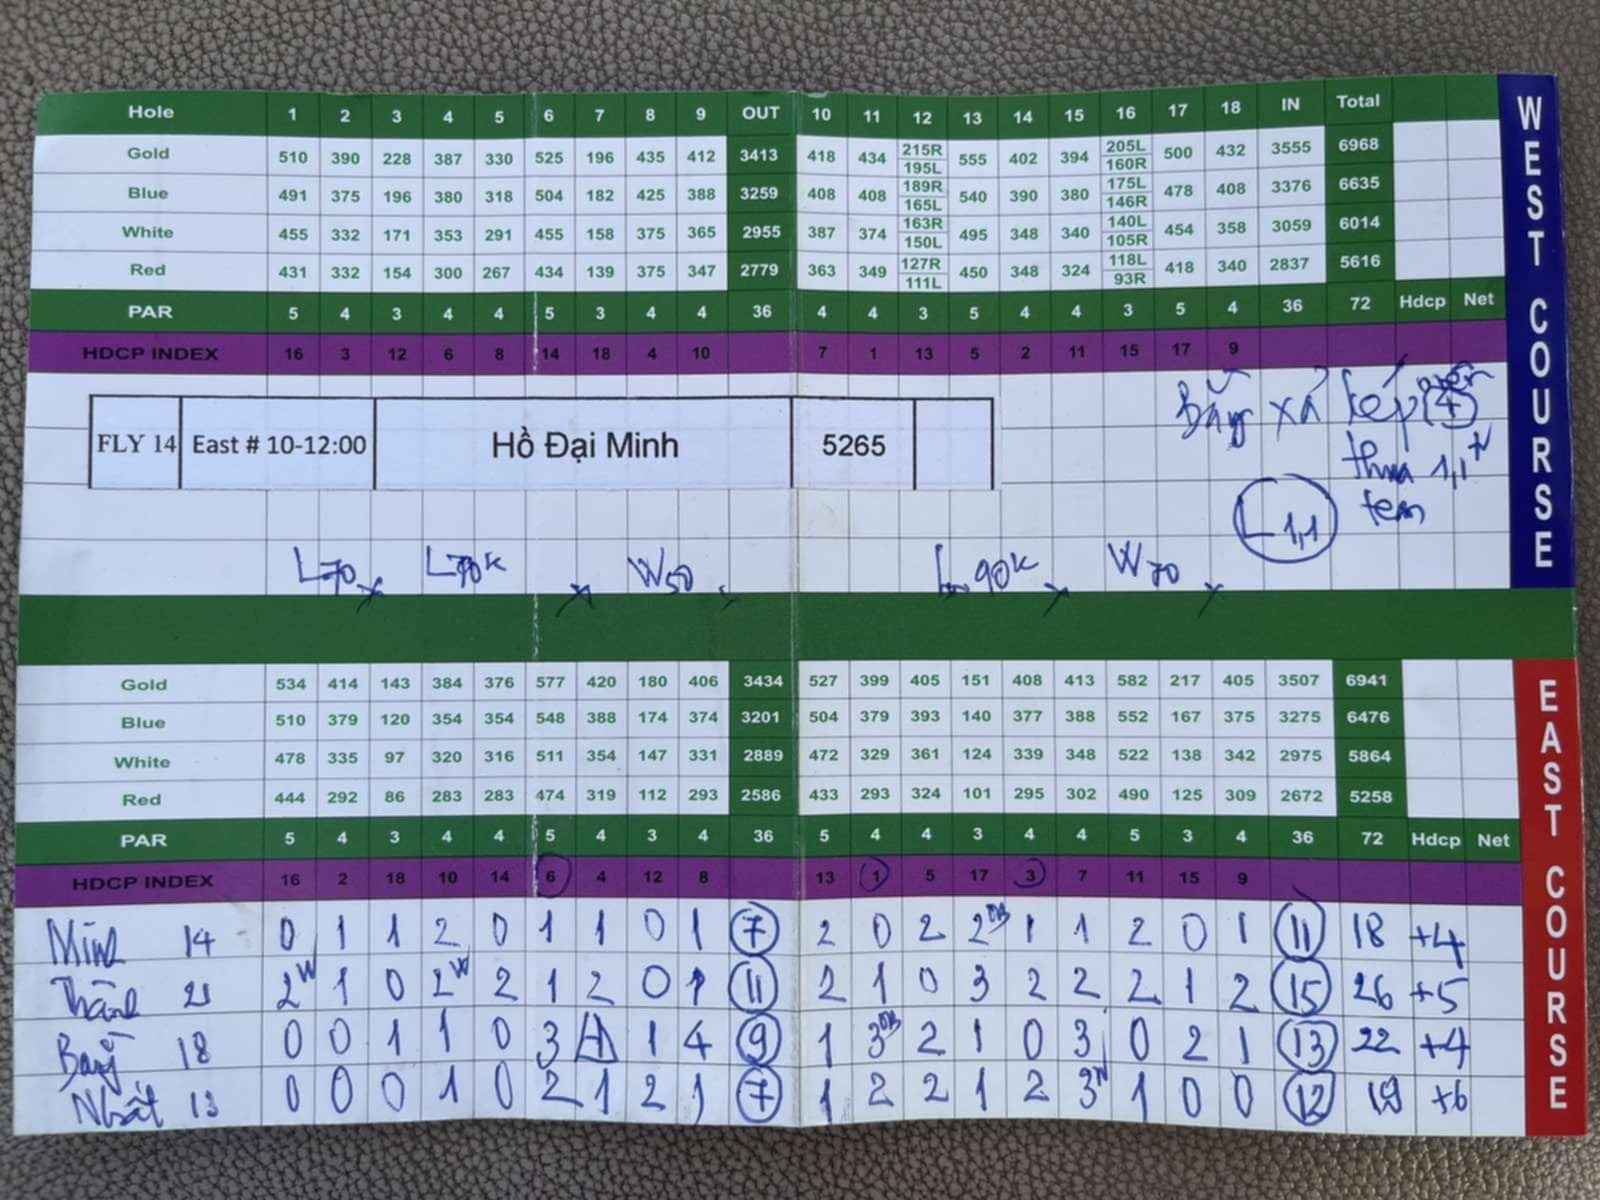 Hole 1 2 3 4 5 6 7 8 9 OUT 10 11 12 13 14 15 16 17 18 IN Total
Gold 510 390 228 387 330 525 196 435 412 3413 418 434 215R 195L 555 402 394 205L 160R 500 432 3555 6968
Blue 491 375 196 380 318 504 182 425 388 3259 408 408 189R 165L 540 390 380 175L 146R 478 408 3376 6635
White 455 332 171 353 291 455 158 375 365 2955 387 374 163R 150L 495 348 340 140L 105R 454 358 3059 6014
Red 431 332 154 300 267 434 139 375 347 2779 363 349 127R 111L 450 348 324 118L 93R 418 340 2837 5616
PAR 5 4 3 4 4 5 3 4 4 36 4 4 3 5 4 4 3 5 4 36 72 Hdcp Net
HDCP INDEX 16 3 12 6 8 14 18 4 10 7 1 13 5 2 11 15 17 9
WEST COURSE
FLY 14 East # 10-12:00 Hồ Đại Minh 5265
xả kép (4)
thua 1,1
L 1,1 tem
L70 L70k W50 90k W70
Gold 534 414 143 384 376 577 420 180 406 3434 527 399 405 151 408 413 582 217 405 3507 6941
Blue 510 379 120 354 354 548 388 174 374 3201 504 379 393 140 377 388 552 167 375 3275 6476
White 478 335 97 320 316 511 354 147 331 2889 472 329 361 124 339 348 522 138 342 2975 5864
Red 444 292 86 283 283 474 319 112 293 2586 433 293 324 101 295 302 490 125 309 2672 5258
PAR 5 4 3 4 4 5 4 3 4 36 5 4 4 3 4 4 5 3 4 36 72 Hdcp Net
HDCP INDEX 16 2 18 10 14 6 4 12 8 13 1 5 17 3 7 11 15 9
EAST COURSE
Minh 14 0 1 1 2 0 1 1 0 1 7 2 0 2 2OB 1 1 2 0 1 11 18 +4
Thành 21 2W 1 0 2W 2 1 2 0 1 11 2 1 0 3 2 2 2 1 2 15 26 +5
18 0 0 1 1 0 3 1 4 9 1 3OB 2 1 0 3 0 2 1 13 22 +4
Nhất 13 0 0 0 1 0 2 1 2 1 7 1 2 2 1 2 3 1 0 0 12 19 +6